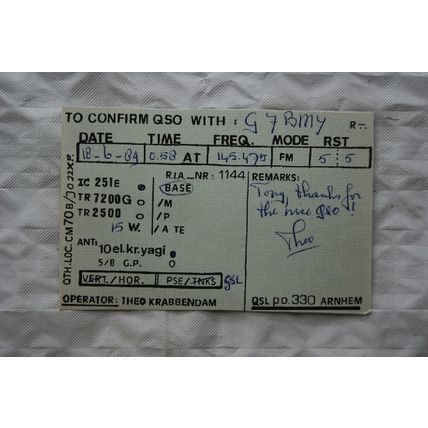 TO CONFIRM QSO WITH: G7BMY R-
DATE TIME FREQ. MODE RST
18-6-89 0.58 AT 145.475 FM 5 5
R.I.A_NR: 1144 REMARKS:
IC 251E BASE Tony, thanks for
TR 7200G /M the nice QSO!
TR 2500 /P Theo
15 W. /A TE
ANT: 10el.kr.yagi
5/8 G.P.
VERT./HOR. PSE/TNKS QSL
OPERATOR: THEO KRABBENDAM QSL p.o. 330 ARNHEM
QTH.LOC. CM70B/JO22XP.